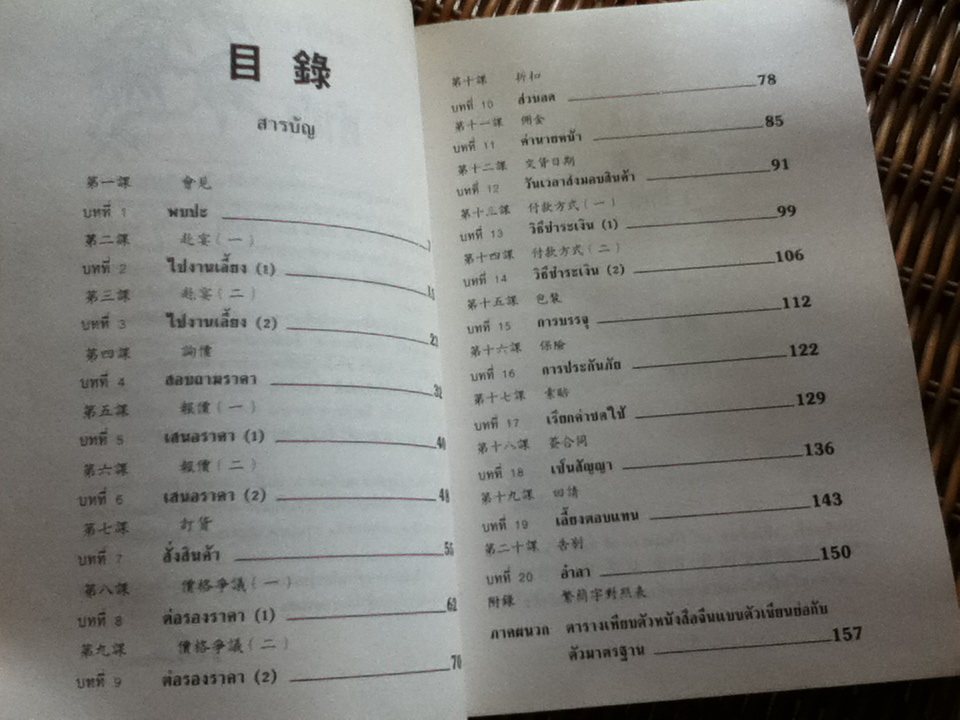 目 錄
สารบัญ
第一課 會見
บทที่ 1 พบปะ
第二課 赴宴(一)
บทที่ 2 ไปงานเลี้ยง (1) 15
第三課 赴宴(二)
บทที่ 3 ไปงานเลี้ยง (2) 23
第四課 詢價
บทที่ 4 สอบถามราคา 32
第五課 報價(一)
บทที่ 5 เสนอราคา (1) 40
第六課 報價(二)
บทที่ 6 เสนอราคา (2) 48
第七課 訂貨
บทที่ 7 สั่งสินค้า 55
第八課 價格爭議(一)
บทที่ 8 ต่อรองราคา (1) 62
第九課 價格爭議(二)
บทที่ 9 ต่อรองราคา (2) 70
第十課 折扣
บทที่ 10 ส่วนลด 78
第十一課 佣金
บทที่ 11 ค่านายหน้า 85
第十二課 交貨日期
บทที่ 12 วันเวลาส่งมอบสินค้า 91
第十三課 付款方式(一)
บทที่ 13 วิธีชำระเงิน (1) 99
第十四課 付款方式(二)
บทที่ 14 วิธีชำระเงิน (2) 106
第十五課 包裝
บทที่ 15 การบรรจุ 112
第十六課 保險
บทที่ 16 การประกันภัย 122
第十七課 索賠
บทที่ 17 เรียกค่าชดใช้ 129
第十八課 簽合同
บทที่ 18 เซ็นสัญญา 136
第十九課 回請
บทที่ 19 เลี้ยงตอบแทน 143
第二十課 告別
บทที่ 20 อำลา 150
附錄 繁簡字對照表
ภาคผนวก ตารางเทียบตัวหนังสือจีนแบบตัวเขียนย่อกับ
ตัวมาตรฐาน 157